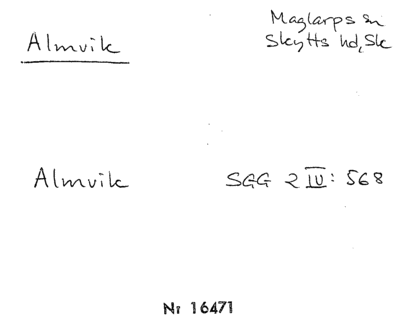 Almvik
Maglarps sn
Skytts hd, Sk
Almvik SGG 2 IV: 568
Nr 16471